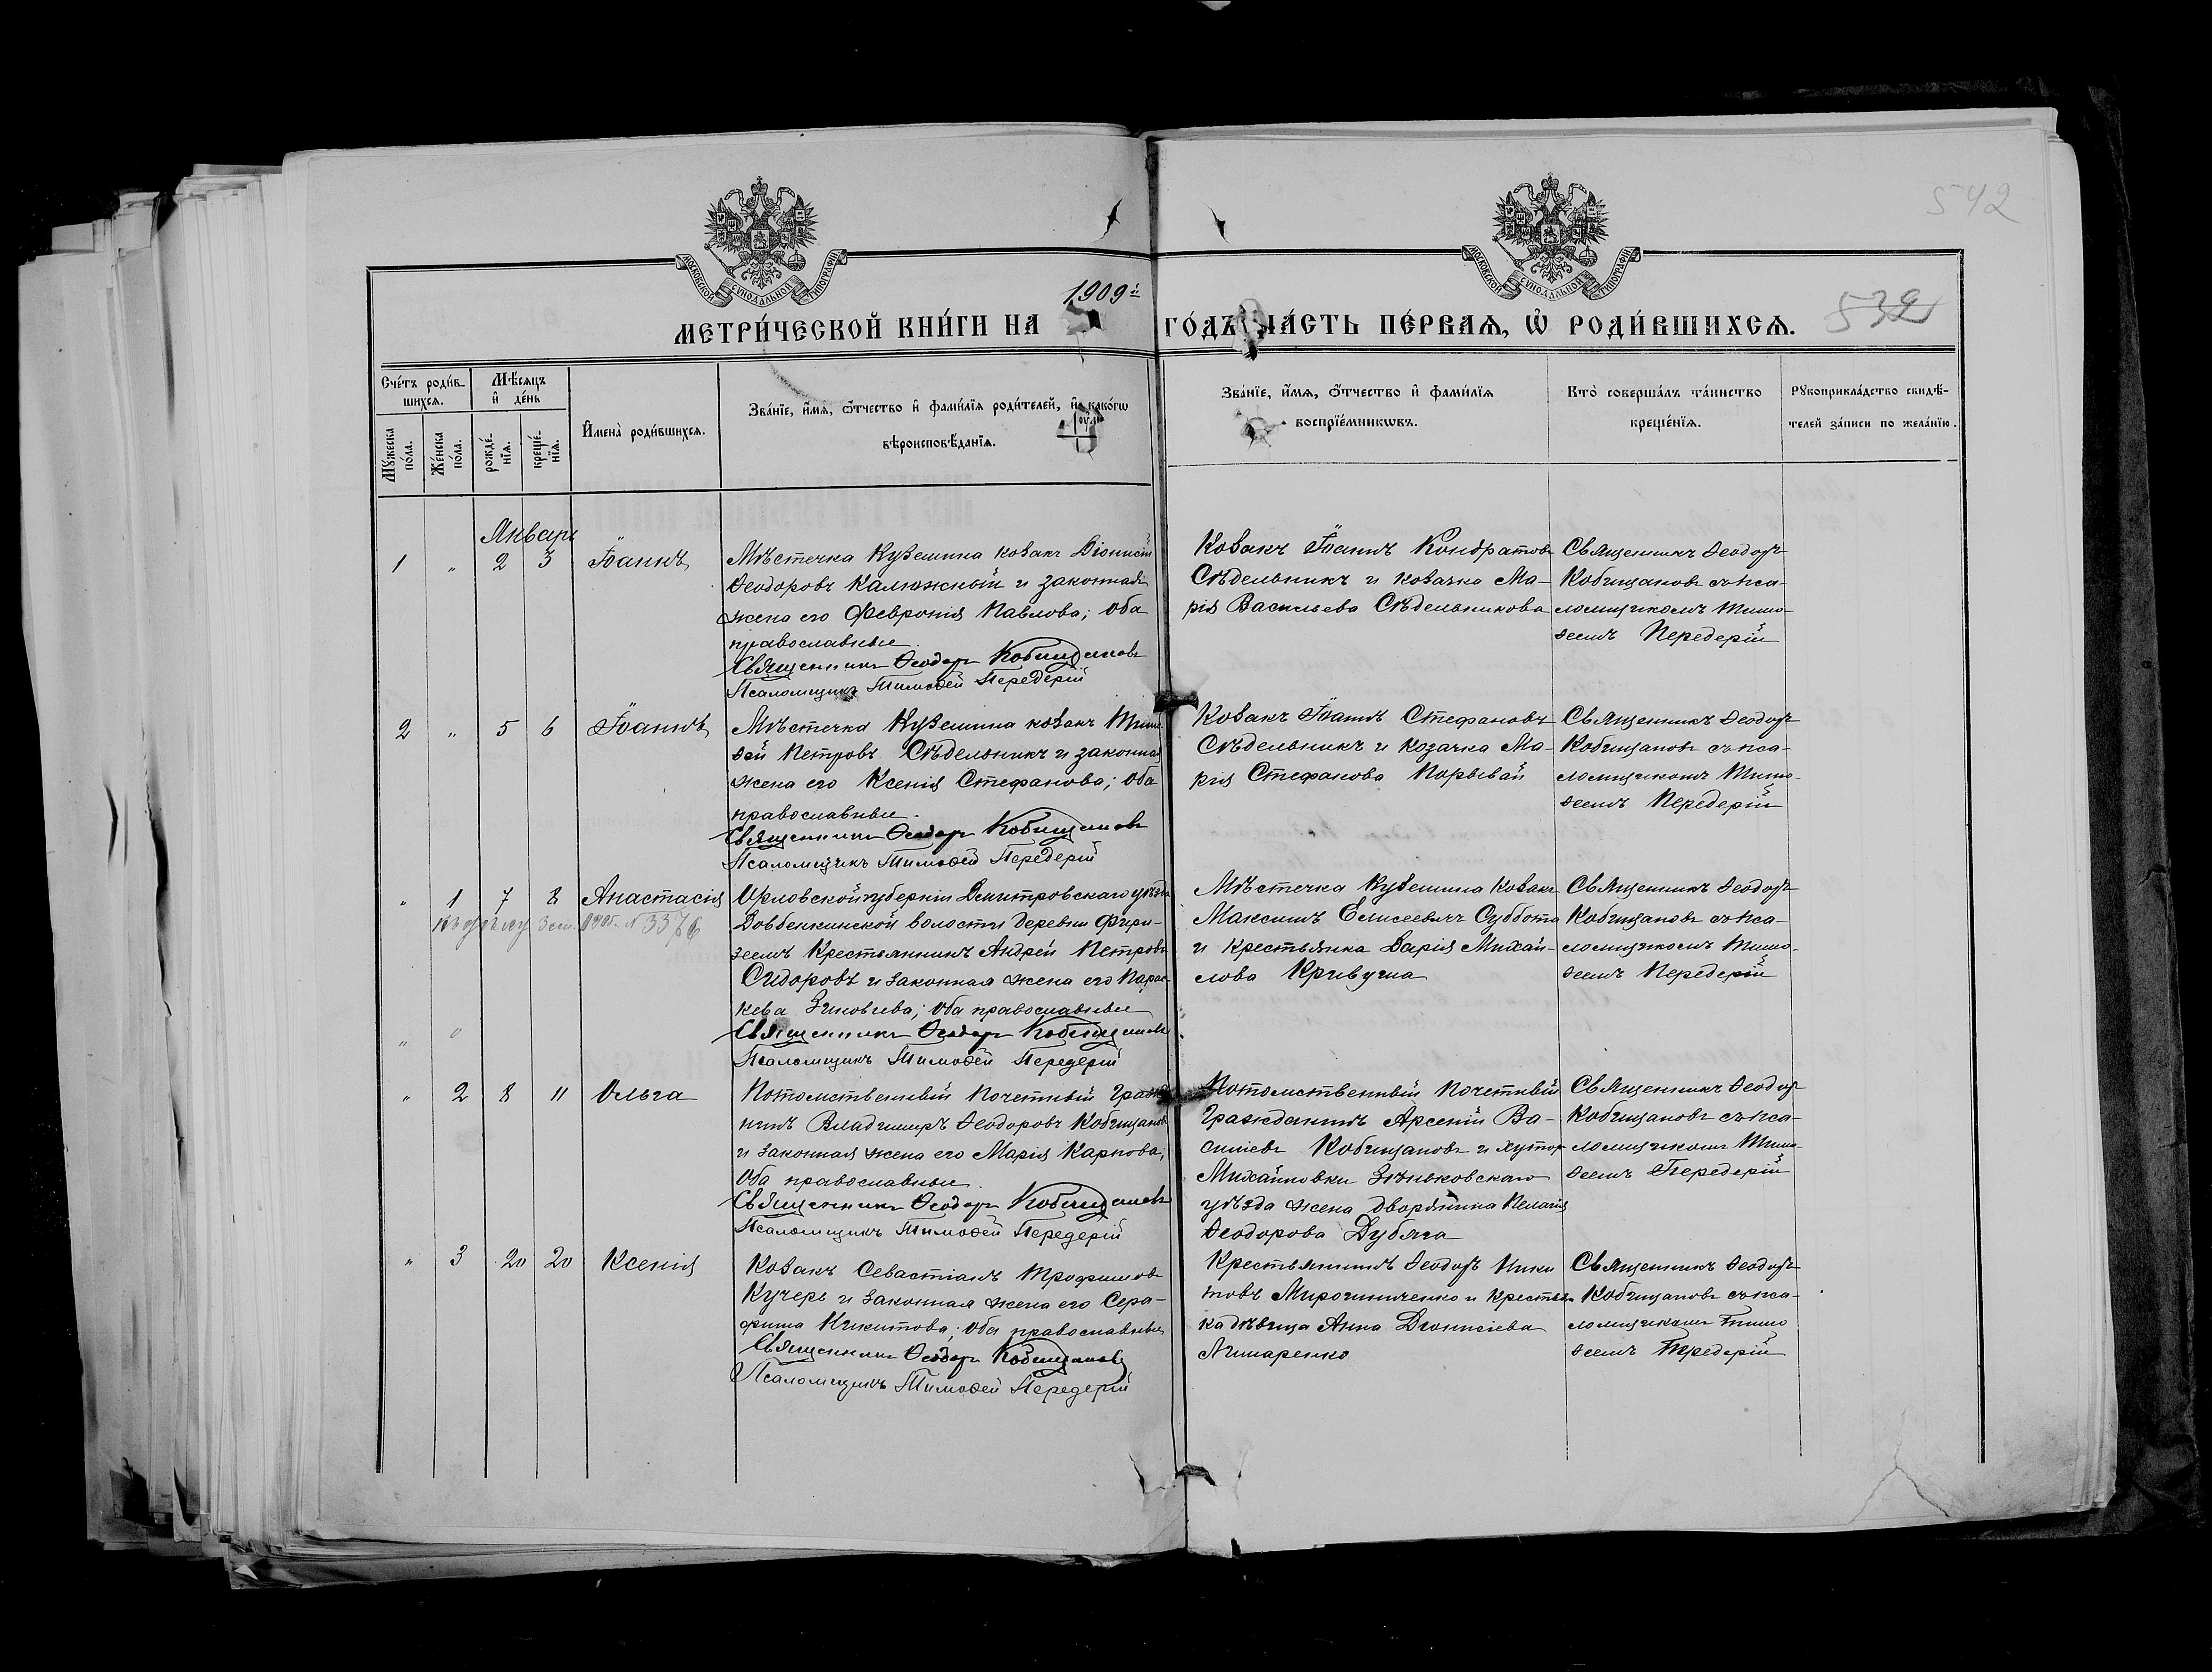 542
МОСКОВСКОЙ СѴНОДАЛЬНОЙ ТИПОГРАФІИ
МОСКОВСКОЙ СѴНОДАЛЬНОЙ ТИПОГРАФІИ
1909й
МЕТРИ́ЧЕСКОЙ КНИ́ГИ НА ГО́ДЪ ЧА́СТЬ ПЕ́РВАѦ, Ѡ҆ РОДИ́ВШИХСѦ.
532
Сче́тъ роди́в-
шихсѧ.
Мѣ́сѧцъ
и҆ де́нь
Мꙋ́жеска по́ла.
Же́нска по́ла.
рожде́-нїѧ.
креще́-нїѧ.
И҆мена̀ роди́вшихсѧ.
Зва́нїе, и҆́мѧ, ѻ҆́тчество и҆ фами́лїѧ роди́телей, и҆ како́гѡ
вѣроисповѣ́данїѧ.
Зва́нїе, и҆́мѧ, ѻ҆́тчество и҆ фами́лїѧ
воспрїе́мникѡвъ.
Кто̀ соверша́лъ та́инство
креще́нїѧ.
Рꙋкоприкла́дство свидѣ́-
телей за́писи по жела́нїю.
Январь
1 " 2 3 Іоаннъ
Мѣстечка Куземина козакъ Діонисій
Ѳеодоровъ Калюжный и законная
жена его Февронія Павлова; оба
православные
Священникъ Ѳеодоръ Кобищановъ
Псаломщикъ Тимоѳей Передерій
Козакъ Іоаннъ Кондратовъ
Сѣдельникъ и козачка Ма-
рія Васильева Сѣдельникова
Священникъ Ѳеодоръ
Кобищановъ съ пса-
ломщикомъ Тимо-
ѳеемъ Передерій
2 " 5 6 Іоаннъ
Мѣстечка Куземина козакъ Тимо-
ѳей Петровъ Сѣдельникъ и законная
жена его Ксенія Стефанова; оба
православные.
Священникъ Ѳеодоръ Кобищановъ
Псаломщикъ Тимоѳей Передерій
Козакъ Іоаннъ Стефановъ
Сѣдельникъ и козачка Ма-
рія Стефанова Порывай
Священникъ Ѳеодоръ
Кобищановъ съ пса-
ломщикомъ Тимо-
ѳеемъ Передерій
" 1 7 8 Анастасія
№ 3376
Орловской губерніи Дмитровскаго уѣзда
Довбенкинской волости деревни Фири-
зеемъ Крестьянинъ Андрей Петровъ
Сидоровъ и законная жена его Парас-
кева Зиновьева; оба православные
Священникъ Ѳеодоръ Кобищановъ
Псаломщикъ Тимоѳей Передерій
Мѣстечка Куземина козакъ
Максимъ Елисеевичъ Суббота
и крестьянка Дарія Михай-
лова Кривуша
Священникъ Ѳеодоръ
Кобищановъ съ пса-
ломщикомъ Тимо-
ѳеемъ Передерій
" 2 8 11 Ольга
Потомственный Почетный Гражда-
нинъ Владимиръ Ѳеодоровъ Кобищановъ
и законная жена его Марія Карпова;
оба православные.
Священникъ Ѳеодоръ Кобищановъ
Псаломщикъ Тимоѳей Передерій
Потомственный Почетный
Гражданинъ Арсеній Ва-
силіевъ Кобищановъ и хутор
Михайловки Зѣньковскаго
уѣзда жена дворянина Пелагія
Ѳеодорова Дубяга
Священникъ Ѳеодоръ
Кобищановъ съ пса-
ломщикомъ Тимо-
ѳеемъ Передерій
" 3 20 20 Ксенія
Козакъ Севастіанъ Трофимовъ
Кучеръ и законная жена его Сера-
фима Никитова; оба православные
Священникъ Ѳеодоръ Кобищановъ
Псаломщикъ Тимоѳей Передерій
Крестьянинъ Ѳеодоръ Ники
товъ Мирошниченко и крестьян
ка дѣвица Анна Діонисіева
Лимаренко
Священникъ Ѳеодоръ
Кобищановъ съ пса-
ломщикомъ Тимо
ѳеемъ Передерій